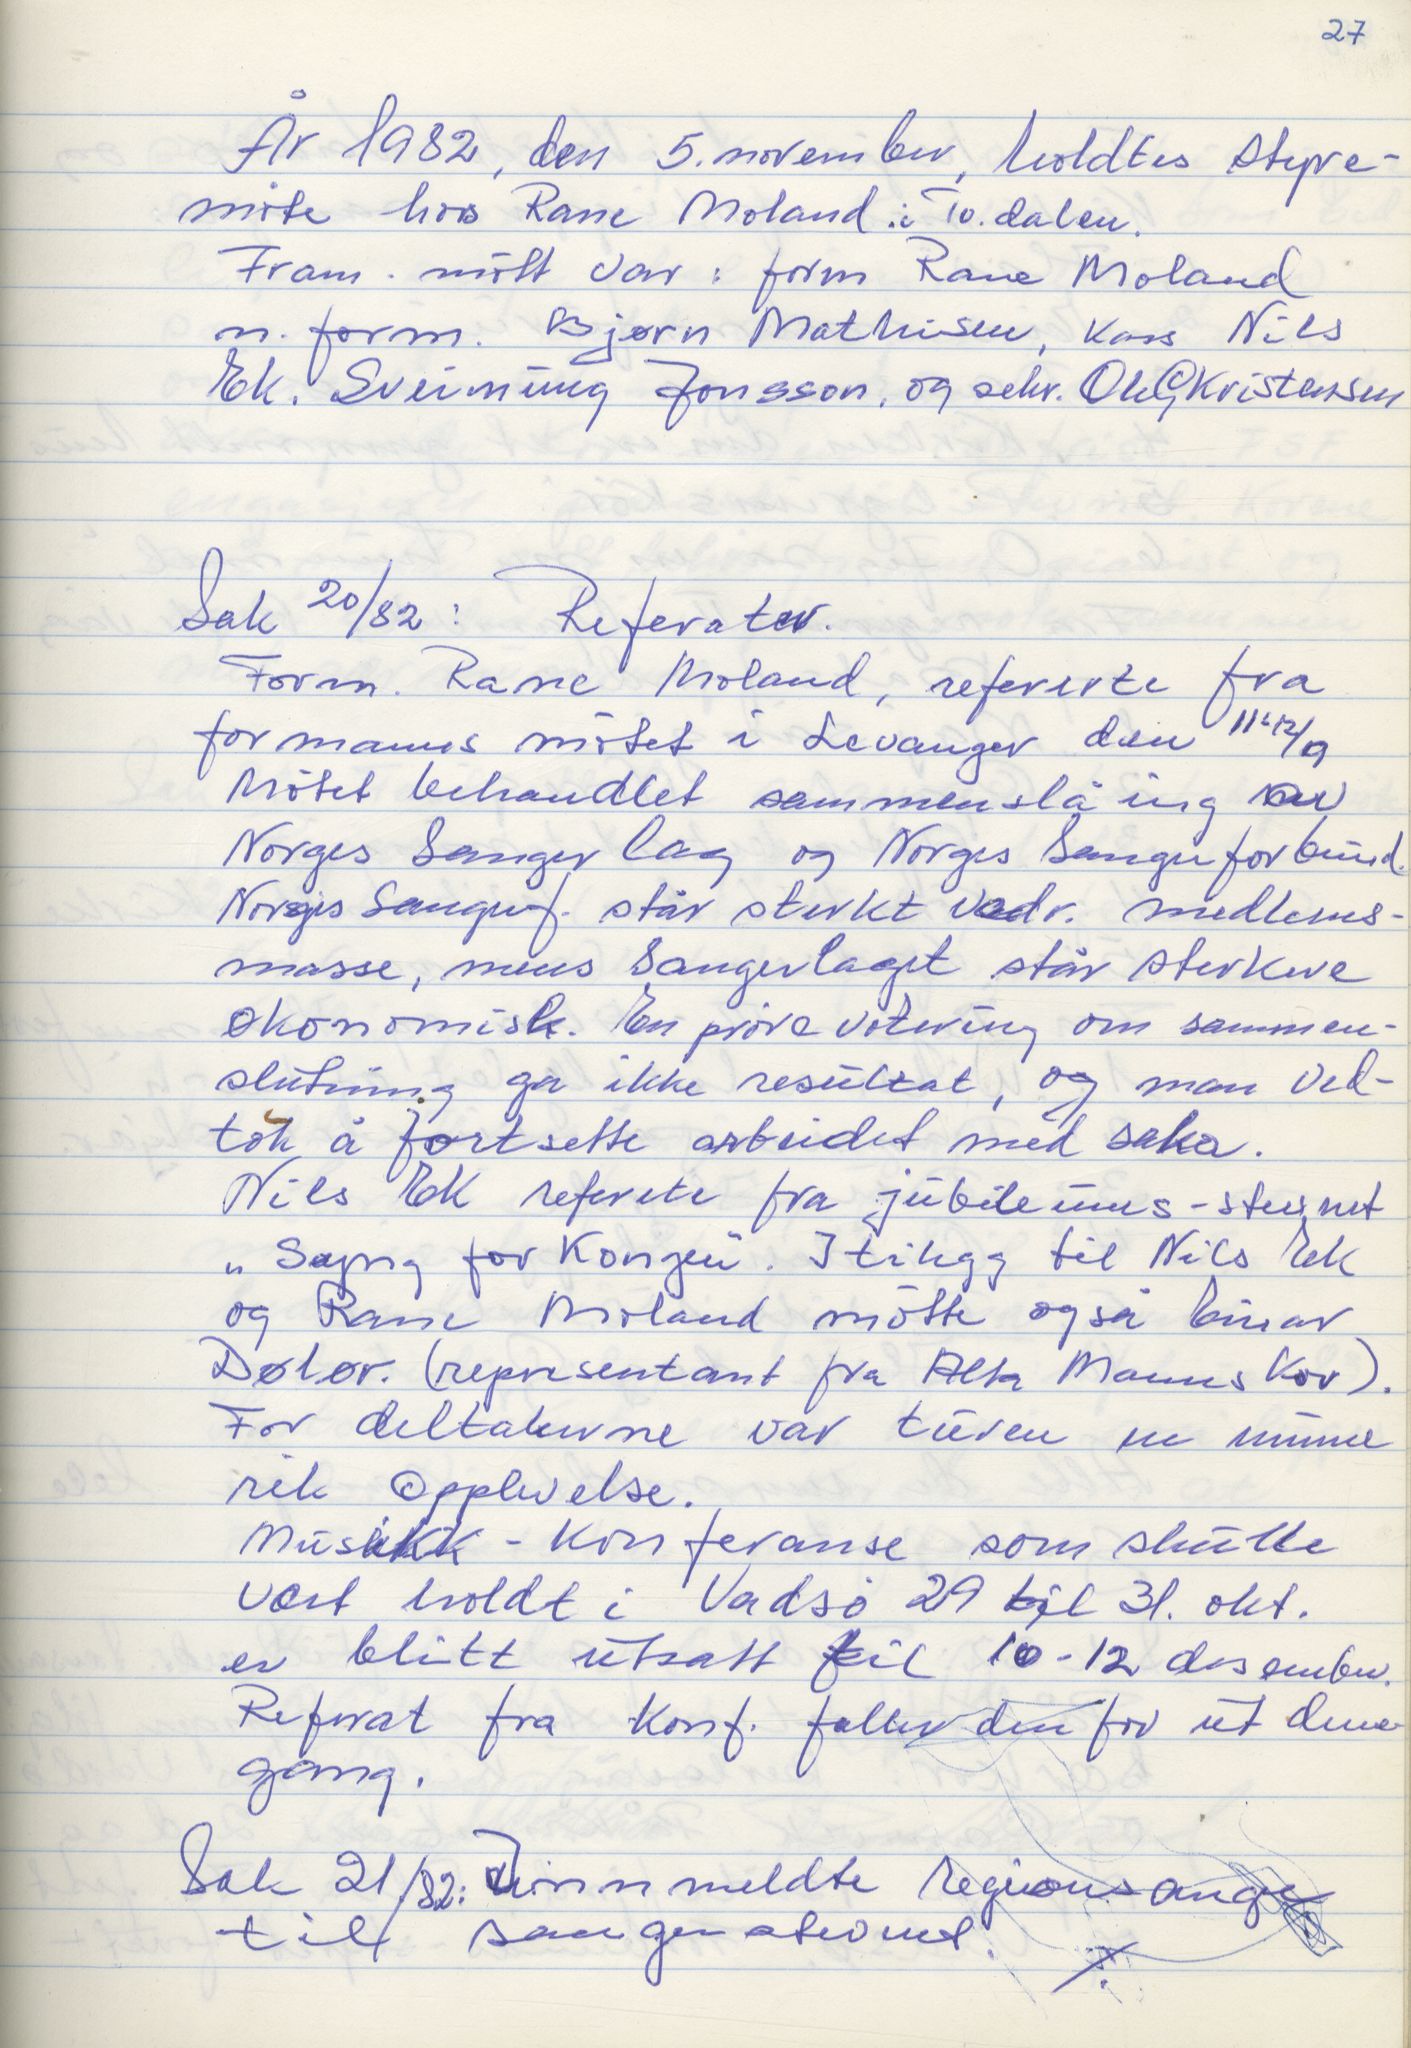 27
År 1982, den 5. november, holdtes styre-
möte hos Rane Moland i Tv. dalen.
Fram. mött var: form Rane Moland
n. form. Bjørn Mathisen, kass Nils
Ek. Sveinung Jonsson, og sekr. Ole G Kristensen
Sak 20/82: Referater.
Form. Rane Moland, refererte fra
formanns mötet i Levanger den 11-12/9
Mötet behandlet sammenslåing av
Norges Sangerlag og Norges Sangerforbund.
Norges Sangerf. står sterkt vedr. medlems-
masse, mens Sangerlaget står sterkere
økonomisk. En pröve votering om sammen-
slutning ga ikke resultat, og man ved-
tok å fortsette arbeidet med saka.
Nils Ek referete fra jubileums-stevnet
„Syng for Kongen". I tilegg til Nils Ek
og Rane Moland mötte også Einar
Dølør. (representant fra Alta Manns Kor).
For deltakerne var turen en minne
rik opplevelse.
Musikk-Konferanse som skulle
vært holdt i Vadsö 29 til 31. okt.
er blitt utsatt til 10-12 desember.
Referat fra Konf. faller den for ut denne
gang.
Sak 21/82: Innmeldte regionsange
til sangerstevnet.